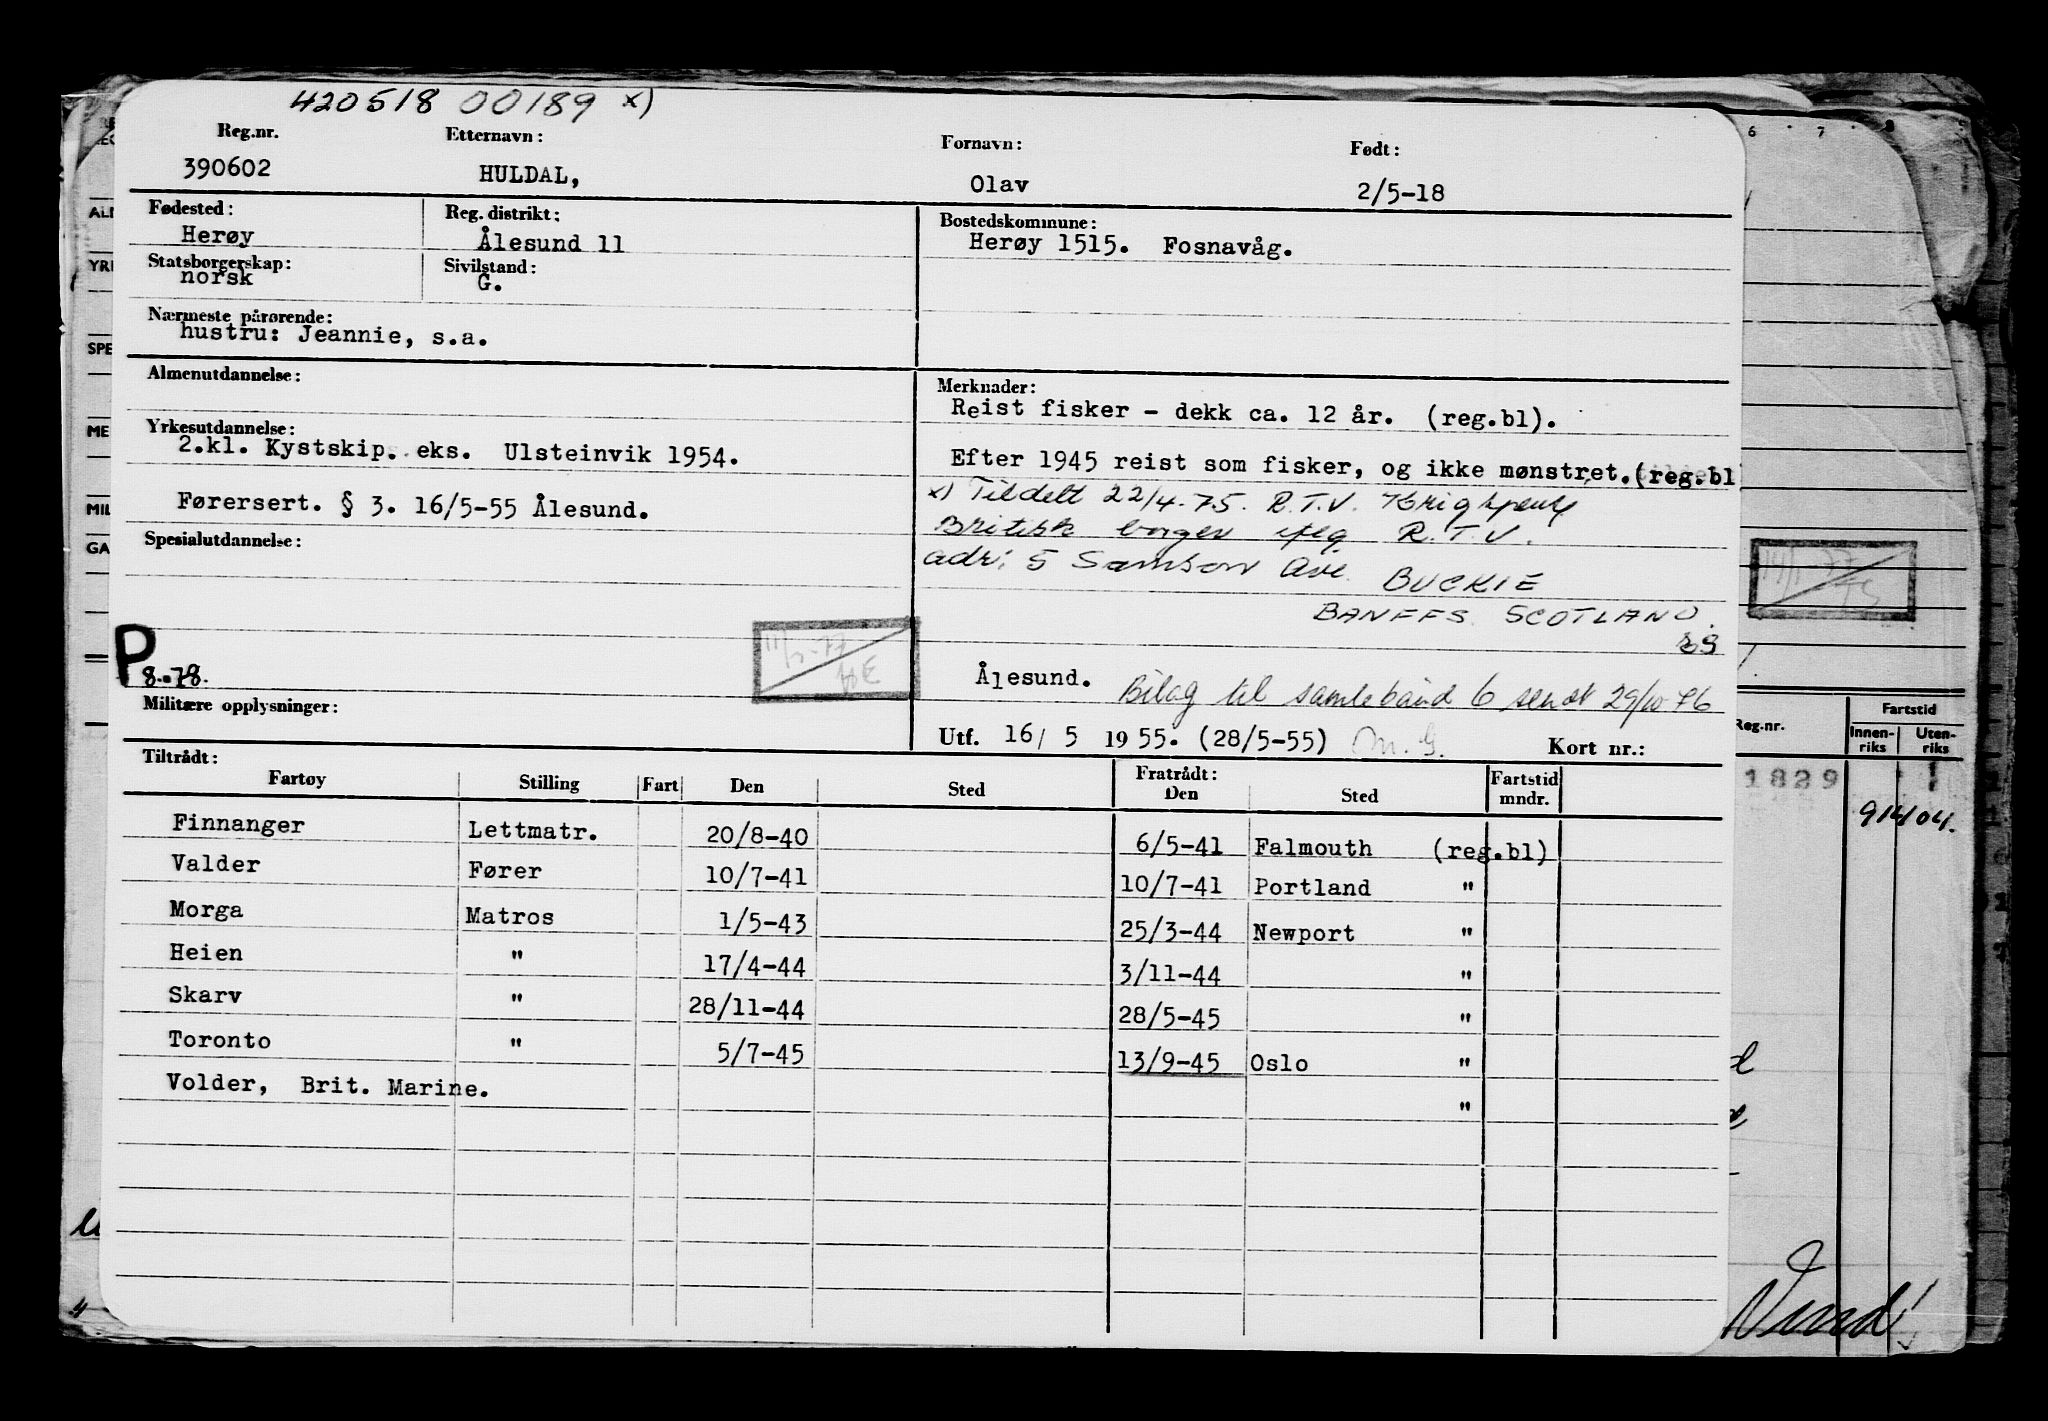 420518 00189 x)
Reg.nr. Etternavn: Fornavn: Født:
390602 HULDAL, Olav 2/5-18
Fødested: Reg. distrikt: Bostedskommune:
Herøy Ålesund 11 Herøy 1515. Fosnavåg.
Statsborgerskap: Sivilstand:
norsk G.
Nærmeste pårørende:
hustru: Jeannie, s.a.
Almenutdannelse: Merknader:
Reist fisker - dekk ca. 12 år. (reg.bl).
Yrkesutdannelse:
2.kl. Kystskip. eks. Ulsteinvik 1954.
Efter 1945 reist som fisker, og ikke mønstret. (reg.bl
Førersert. § 3. 16/5-55 Ålesund.
x) Tildelt 22/4-75. R.T.V.
Britisk borger iflg R.T.V.
Spesialutdannelse:
adr: 5 Samson Ave. BUCKIE
BANFFS. SCOTLAND.
P
8.-78.
Ålesund. Bilag til samlebånd 6 sendt 29/10-76
Militære opplysninger:
Utf. 16/ 5 1955. (28/5-55) M.G. Kort nr.:
Tiltrådt: Fratrådt: Fartstid
Fartøy Stilling Fart Den Sted Den Sted mndr.
Finnanger Lettmatr. 20/8-40 6/5-41 Falmouth (reg.bl)
Valder Fører 10/7-41 10/7-41 Portland "
Morga Matros 1/5-43 25/3-44 Newport "
Heien " 17/4-44 3/11-44 "
Skarv " 28/11-44 28/5-45 "
Toronto " 5/7-45 13/9-45 Oslo "
Volder, Brit. Marine. "
6 7 8
ALM
YRK
SPE
ME
MIL
GA
Reg.nr. Fartstid
Innen-riks Uten-riks
1829